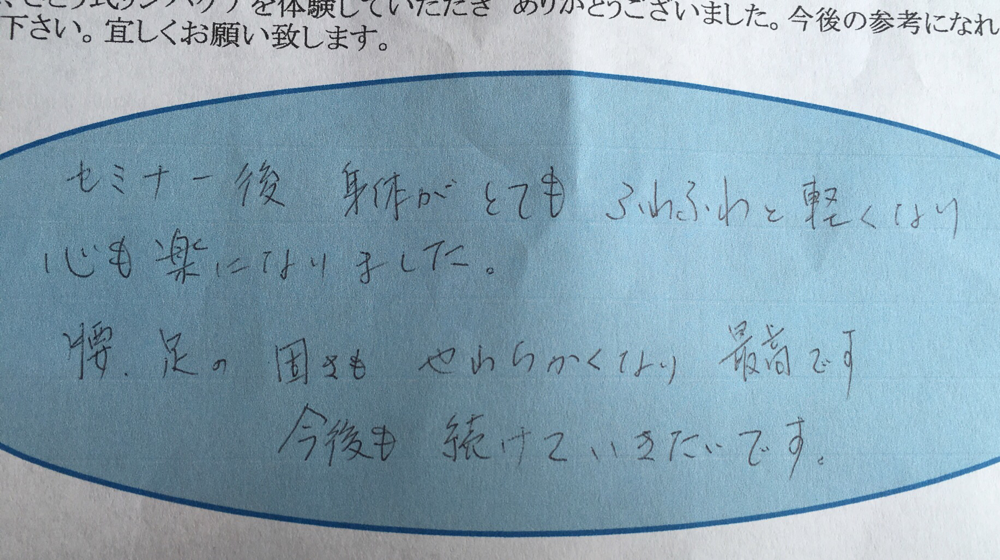 さとう式リンパケアを体験していただき ありがとうございました。今後の参考になれ
下さい。宜しくお願い致します。
セミナー後 身体がとても ふわふわと軽くなり
心も楽になりました。
腰、足の固さも やわらかくなり 最高です
今後も 続けていきたいです。